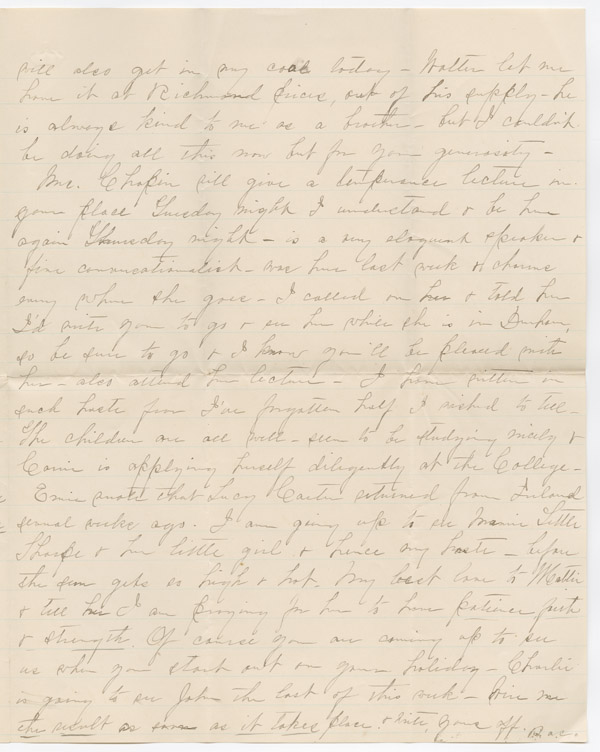 will also get in my coal today - Walter let me
have it at Richmond prices, out of his supply - he
is always kind to me as a brother - but I couldn't
be doing all this now but for your generosity -
Mrs. Chapin will give a temperance lecture in
your place Tuesday night I understand & be here
again Thursday night - is a very eloquent speaker &
fine conversationalist - was here last week & charms
every where she goes - I called on her & told her
I'd write you to go & see her while she is in Durham,
so be sure to go & I know you'll be pleased with
her - also attend her lecture - I have written in
such haste fear I've forgotten half I wished to tell -
The children are all well - seem to be studying nicely &
is applying herself diligently at the College -
wrote that Lucy Carter returned from
several weeks ago. I am going up to see Mamie Little
& her little girl & hence my haste - before
the sun gets so high & hot. My best love to Mattie
& tell her I am praying for her to have patience faith
& strength. Of course you are coming up to see
us when you start out on your holiday - Charlie
is going to see John the last of this week - Give me
the result as soon as it takes place. & write, your aff.